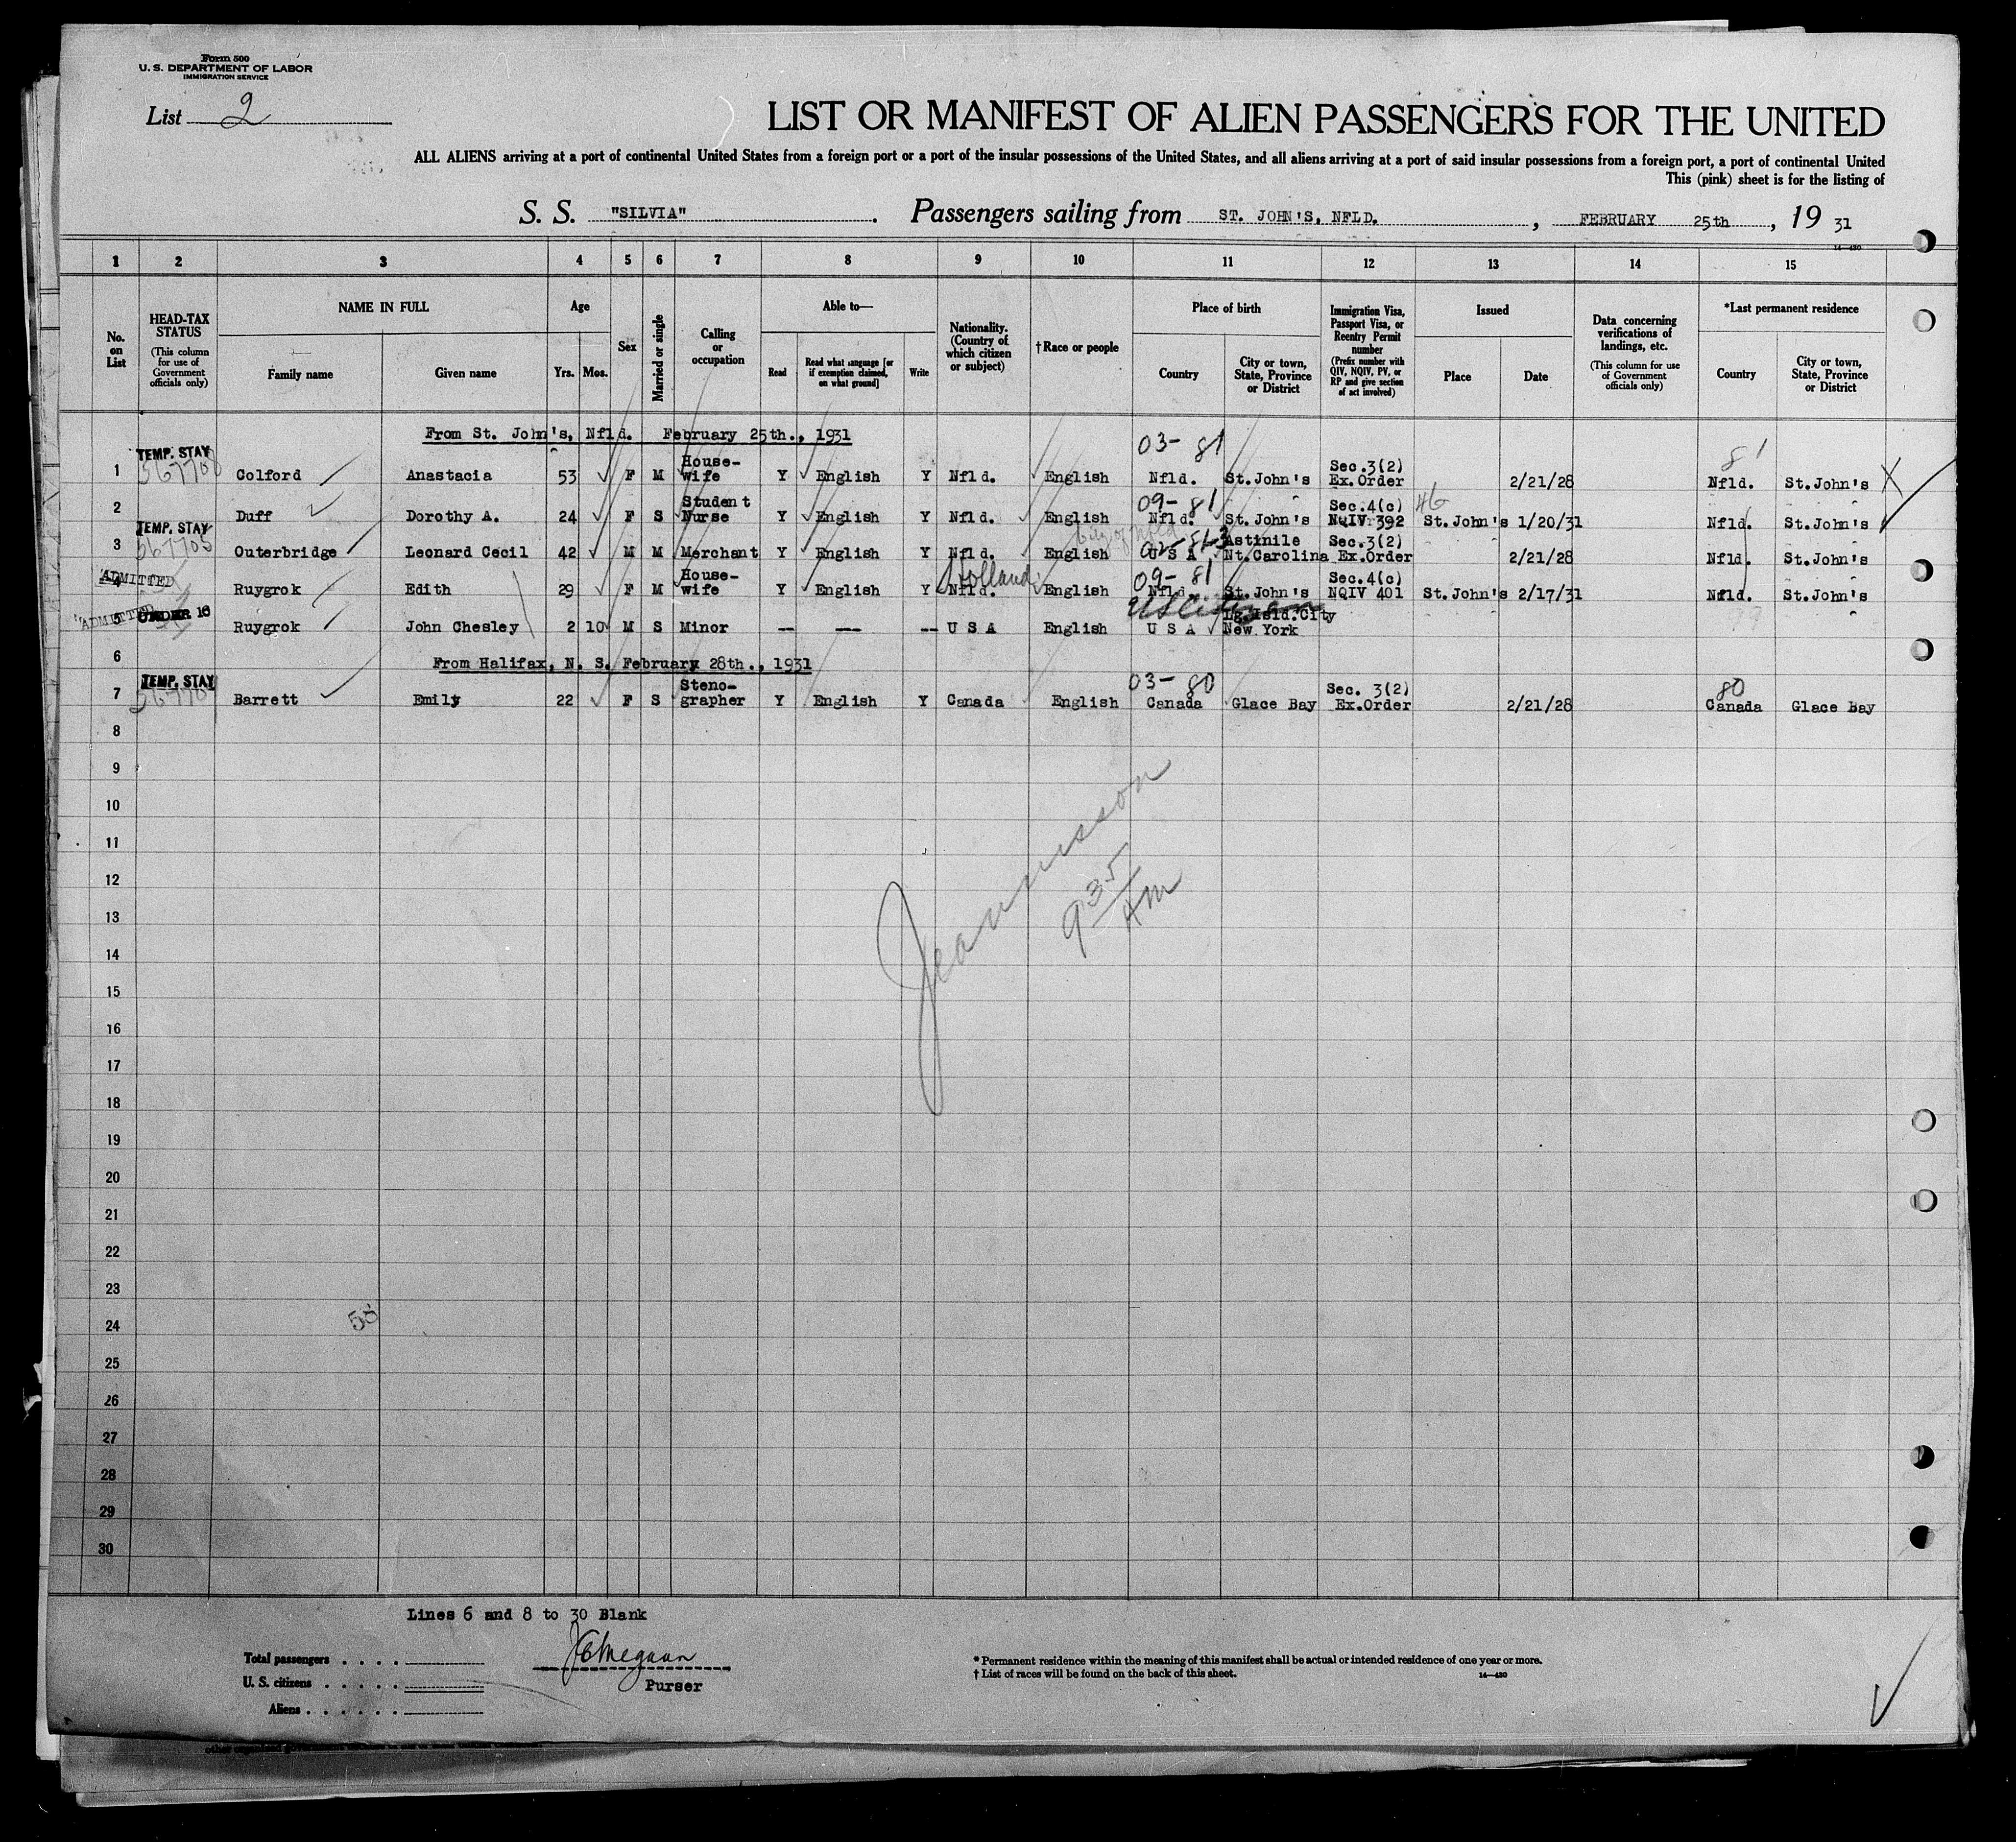 Form 500
U. S. DEPARTMENT OF LABOR
IMMIGRATION SERVICE
List 2
LIST OR MANIFEST OF ALIEN PASSENGERS FOR THE UNITED
ALL ALIENS arriving at a port of continental United States from a foreign port or a port of the insular possessions of the United States, and all aliens arriving at a port of said insular possessions from a foreign port, a port of continental United
This (pink) sheet is for the listing of
S. S. "SILVIA" . Passengers sailing from ST. JOHN'S, NFLD. , FEBRUARY 25th , 19 31
14—430
1 2 3 4 5 6 7 8 9 10 11 12 13 14 15
No. on List
HEAD-TAX STATUS (This column for use of Government officials only)
NAME IN FULL
Family name Given name
Age
Yrs. Mos.
Sex
Married or single
Calling or occupation
Able to—
Read Read what language [or if exemption claimed, on what ground] Write
Nationality. (Country of which citizen or subject)
†Race or people
Place of birth
Country City or town, State, Province or District
Immigration Visa, Passport Visa, or Reentry Permit number (Prefix number with QIV, NQIV, PV, or RP and give section of act involved)
Issued
Place Date
Data concerning verifications of landings, etc. (This column for use of Government officials only)
*Last permanent residence
Country City or town, State, Province or District
From St. John's, Nfld. February 25th., 1931
03- 81 81
1 TEMP. STAY 567708 Colford Anastacia 53 F M House-wife Y English Y Nfld. English Nfld. St.John's Sec.3(2) Ex.Order 2/21/28 Nfld. St.John's X
09- 81 46
2 Duff Dorothy A. 24 F S Student Nurse Y English Y Nfld. English Nfld. St.John's Sec.4(c) NQIV 392 St.John's 1/20/31 Nfld. St.John's
3 TEMP. STAY 567705 Outerbridge Leonard Cecil 42 M M Merchant Y English Y Nfld. English U S A Astinile Nt.Carolina Sec.3(2) Ex.Order 2/21/28 Nfld. St.John's
Holland 09- 81
4 ADMITTED Ruygrok Edith 29 F M House-wife Y English Y Nfld. English Nfld. St.John's Sec.4(c) NQIV 401 St.John's 2/17/31 Nfld. St.John's
US Citizen
5 ADMITTED UNDER 16 Ruygrok John Chesley 2 10 M S Minor -- --- -- U S A English U S A Lg.Isld.City New York
6 From Halifax, N. S. February 28th., 1931
03- 80 80
7 TEMP. STAY Barrett Emily 22 F S Steno-grapher Y English Y Canada English Canada Glace Bay Sec. 3(2) Ex.Order 2/21/28 Canada Glace Bay
8
9
10
11
12
13
14
15
16
17
18
19
20
21
22
23
24
25
26
27
28
29
30
9 35 AM
Lines 6 and 8 to 30 Blank
Total passengers
U. S. citizens
Aliens
Purser
* Permanent residence within the meaning of this manifest shall be actual or intended residence of one year or more.
† List of races will be found on the back of this sheet.
14—430